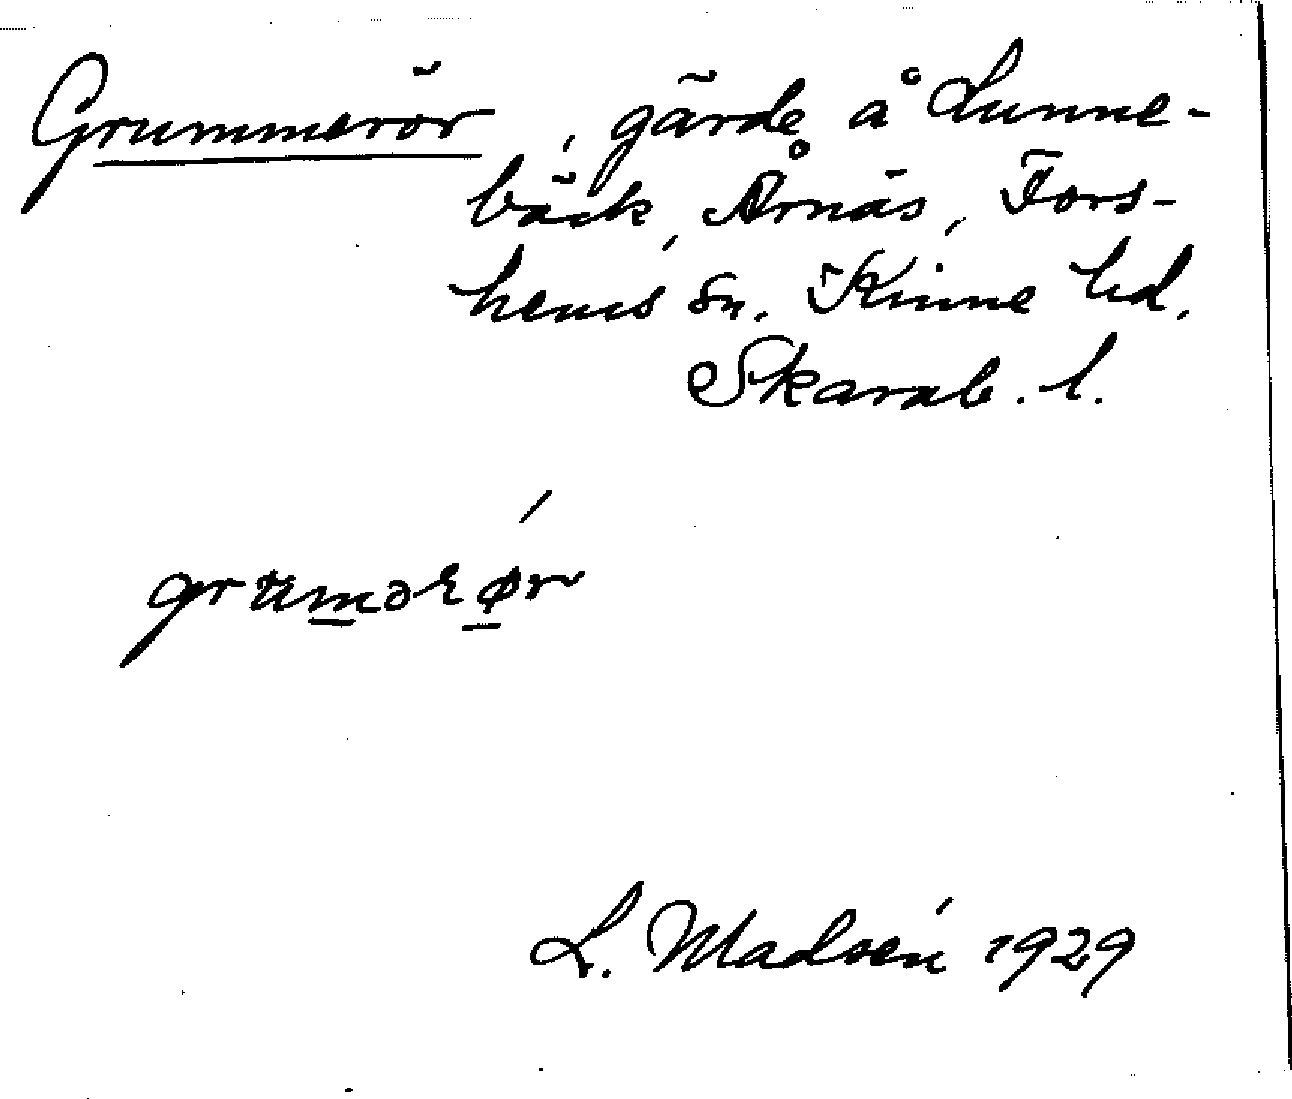 Grummerör, gärde å Lunne-
bäck, Årnäs, Fors-
hems sn. Kinne hd.
Skarab. l.
grumərør
L. Madsén 1929